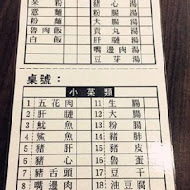 米粉
意麵
粉麵
魯肉飯
白飯
豬心湯
粉腸湯
大腸湯
貢丸湯
肝腱湯
嘴邊肉湯
豆芽湯
桌號：
小菜類
1 五花肉 11 生腸
2 肝腱 12 大腸
3 魷魚 13 粉腸
4 鯊魚 14 豬肺
5 豬肝 15 豬皮
6 豬心 16 魯蛋
7 豬舌頭 17 豆干
8 嘴邊肉 18 油豆腐